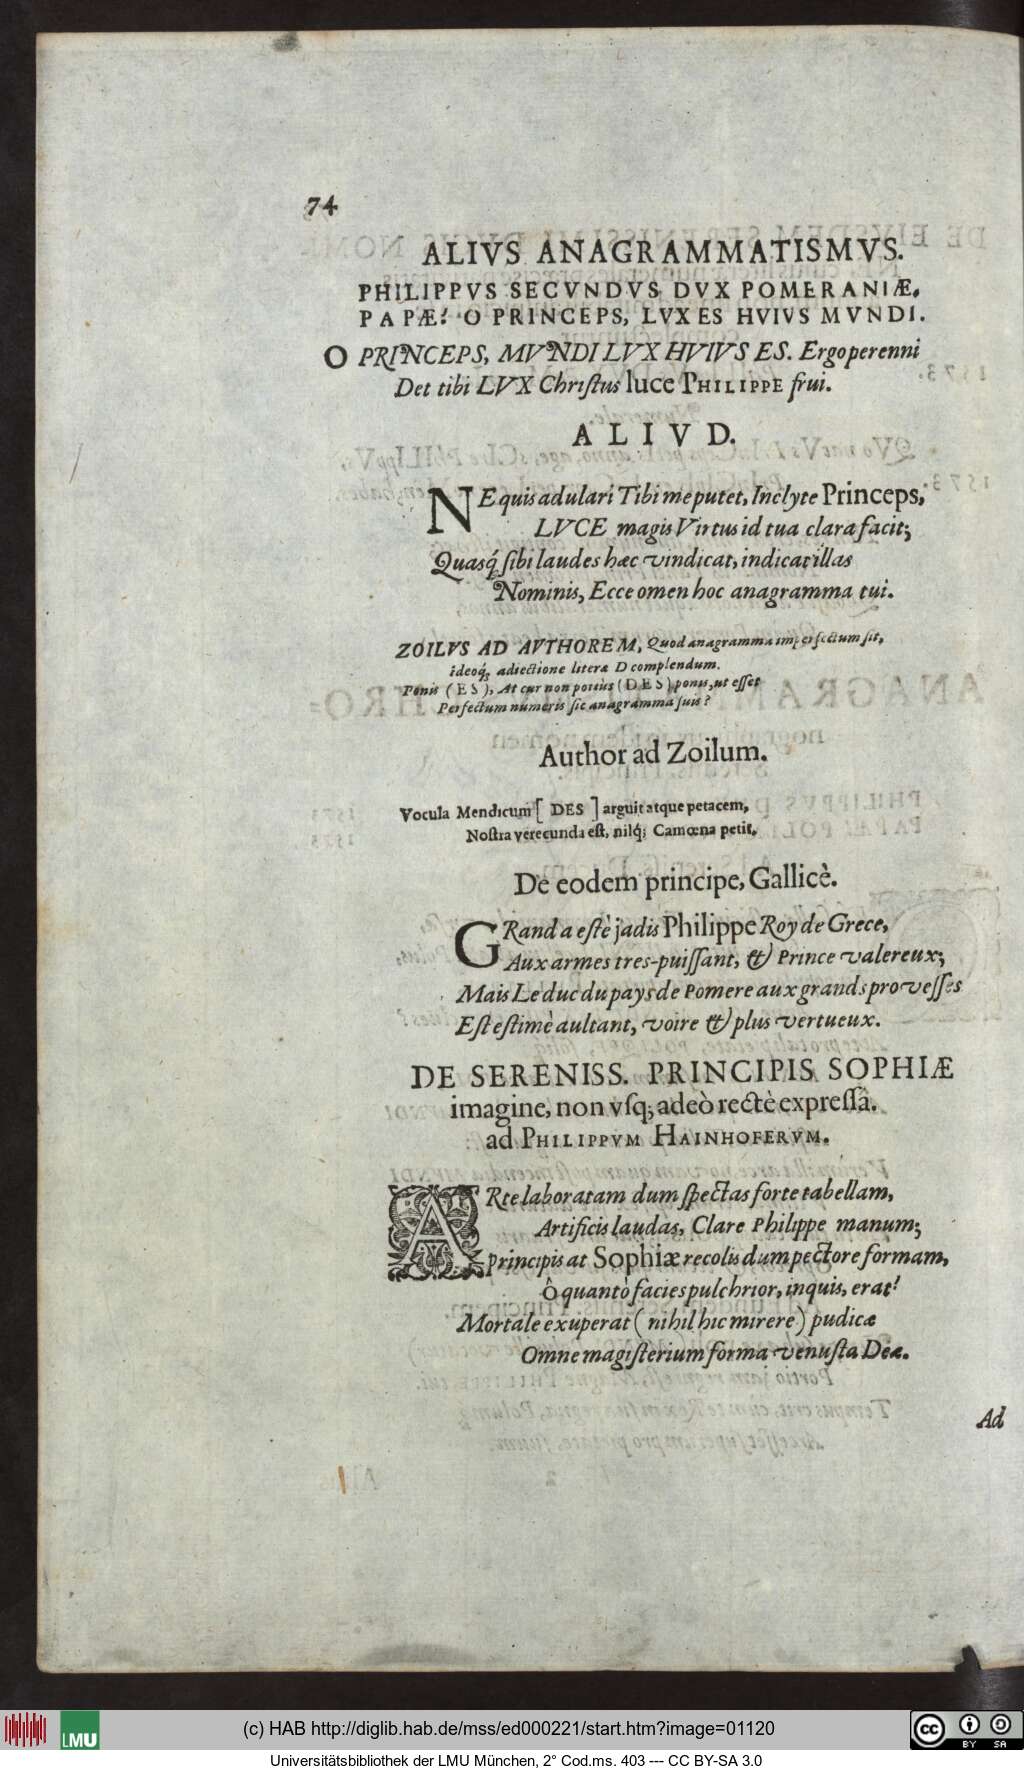 74
ALIVS ANAGRAMMATISMVS.
PHILIPPVS SECVNDVS DVX POMERANIÆ.
PAPÆ! O PRINCEPS, LVX ES HVIVS MVNDI.
O PRINCEPS, MVNDI LVX HVIVS ES. Ergo perenni
Det tibi LVX Chrıſtus luce PHILIPPE frui.
ALIVD.
NE quis adulari Tibi me putet, Inclyte Princeps,
LVCE magis Virtus id tua clara facit;
Quasq́ ſibi laudes hæc vindicat, indicat illas
Nominis, Ecce omen hoc anagramma tui.
ZOILVS AD AVTHOREM, Quod anagramma imperfectum ſit,
ideoq́; adiectione literæ D complendum.
Ponis (ES), At cur non potiùs (DES) ponis, ut eſſet
Perfectum numeris ſic anagramma ſuis?
Author ad Zoilum.
Vocula Mendicum [DES] arguit atque petacem,
Noſtra verecunda eſt, nilq́; Camœna petit.
De eodem principe, Gallicè.
GRand a eſtè jadis Philippe Roy de Grece,
Aux armes tres-puiſſant, & Prince valereux;
Mais Le duc du pays de Pomere aux grands proveſſes
Eſt eſtimè aultant, voire & plus vertueux.
DE SERENISS. PRINCIPIS SOPHIÆ
imagine, non vſq; adeò rectè expreſſâ.
ad PHILIPPVM HAINHOFERVM.
ARte laboratam dum ſpectas forte tabellam,
Artificis laudas, Clare Philippe manum;
Principis at Sophiæ recolis dum pectore formam,
ô quantò facies pulchrior, inquis, erat!
Mortale exuperat (nihil hic mirere) pudicæ
Omne magiſterium forma venuſta Deæ.
Ad
LMU
(c) HAB http://diglib.hab.de/mss/ed000221/start.htm?image=01120
cc BY SA
Universitätsbibliothek der LMU München, 2° Cod.ms. 403 --- CC BY-SA 3.0